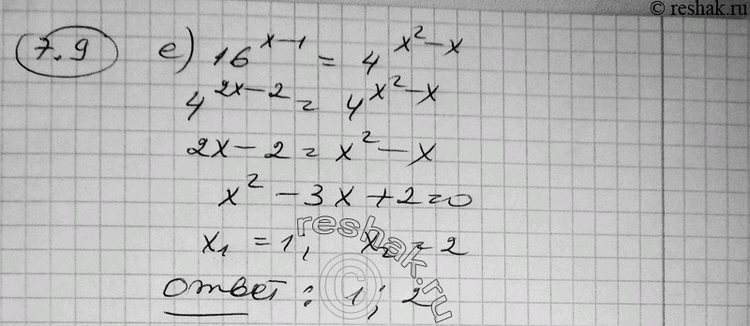 © reshak.ru
7.9 е) 16^(x-1) = 4^(x²-x)
4^(2x-2) = 4^(x²-x)
2x-2 = x²-x
x²-3x+2=0
x₁ = 1, x₂ = 2
Ответ: 1; 2
reshak.ru
©